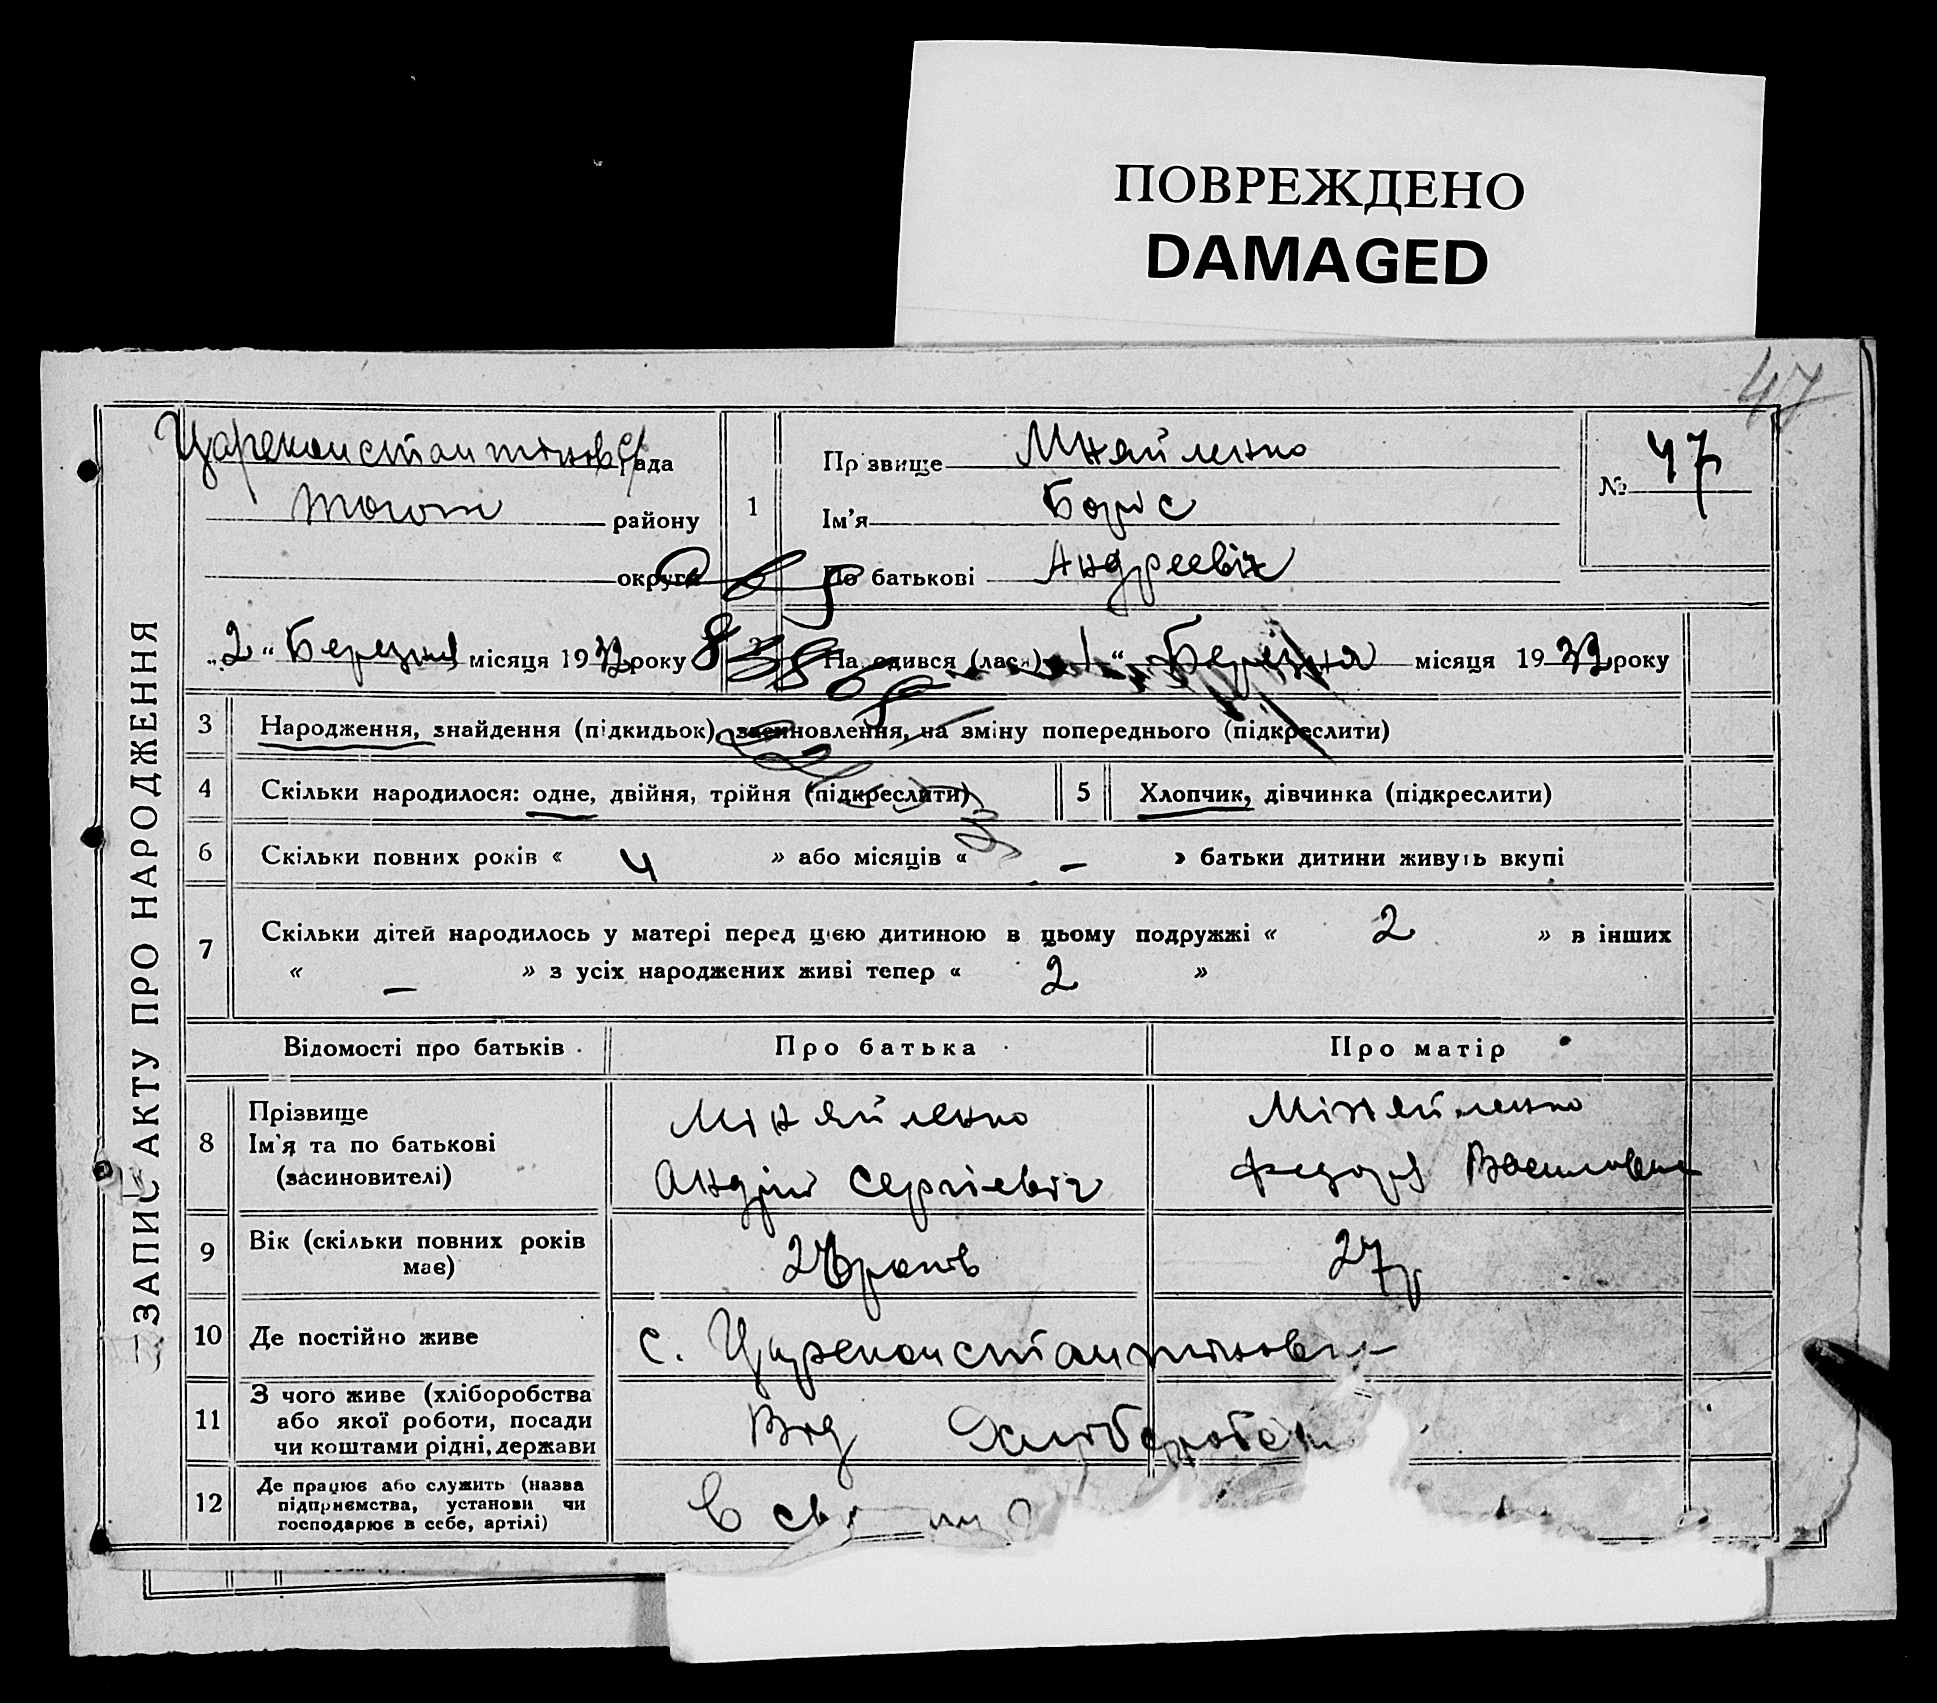 ПОВРЕЖДЕНО
DAMAGED
47
ЗАПИС АКТУ ПРО НАРОДЖЕННЯ
Царeконстантинов рада
тогож району
округи
„2“ Березня місяця 1932 року
1
Прізвище Міняйленко
Ім'я Борис
По батькові Андреевіч
№ 47
2 Народився (лася) „1“ Березня місяця 1932 року
3 Народження, знайдення (підкидьок), засиновлення, на зміну попереднього (підкреслити)
4 Скільки народилося: одне, двійня, трійня (підкреслити)
5 Хлопчик, дівчинка (підкреслити)
6 Скільки повних років « 4 » або місяців « – » батьки дитини живуть вкупі
7 Скільки дітей народилось у матері перед цією дитиною в цьому подружжі « 2 » в інших
« – » з усіх народжених живі тепер « 2 »
Відомості про батьків Про батька Про матір
8 Прізвище
Ім'я та по батькові
(засиновителі)
Міняйленко
Андрій Сергіевіч
Міняйленко
Федора Василовна
9 Вік (скільки повних років
має)
років
27 р
10 Де постійно живе с. Цареконстантиновка
11 З чого живе (хліборобства
або якої роботи, посади
чи коштами рідні, держави
Від Хліборобст
12 Де працює або служить (назва
підприємства, установи чи
господарює в себе, артілі)
В св